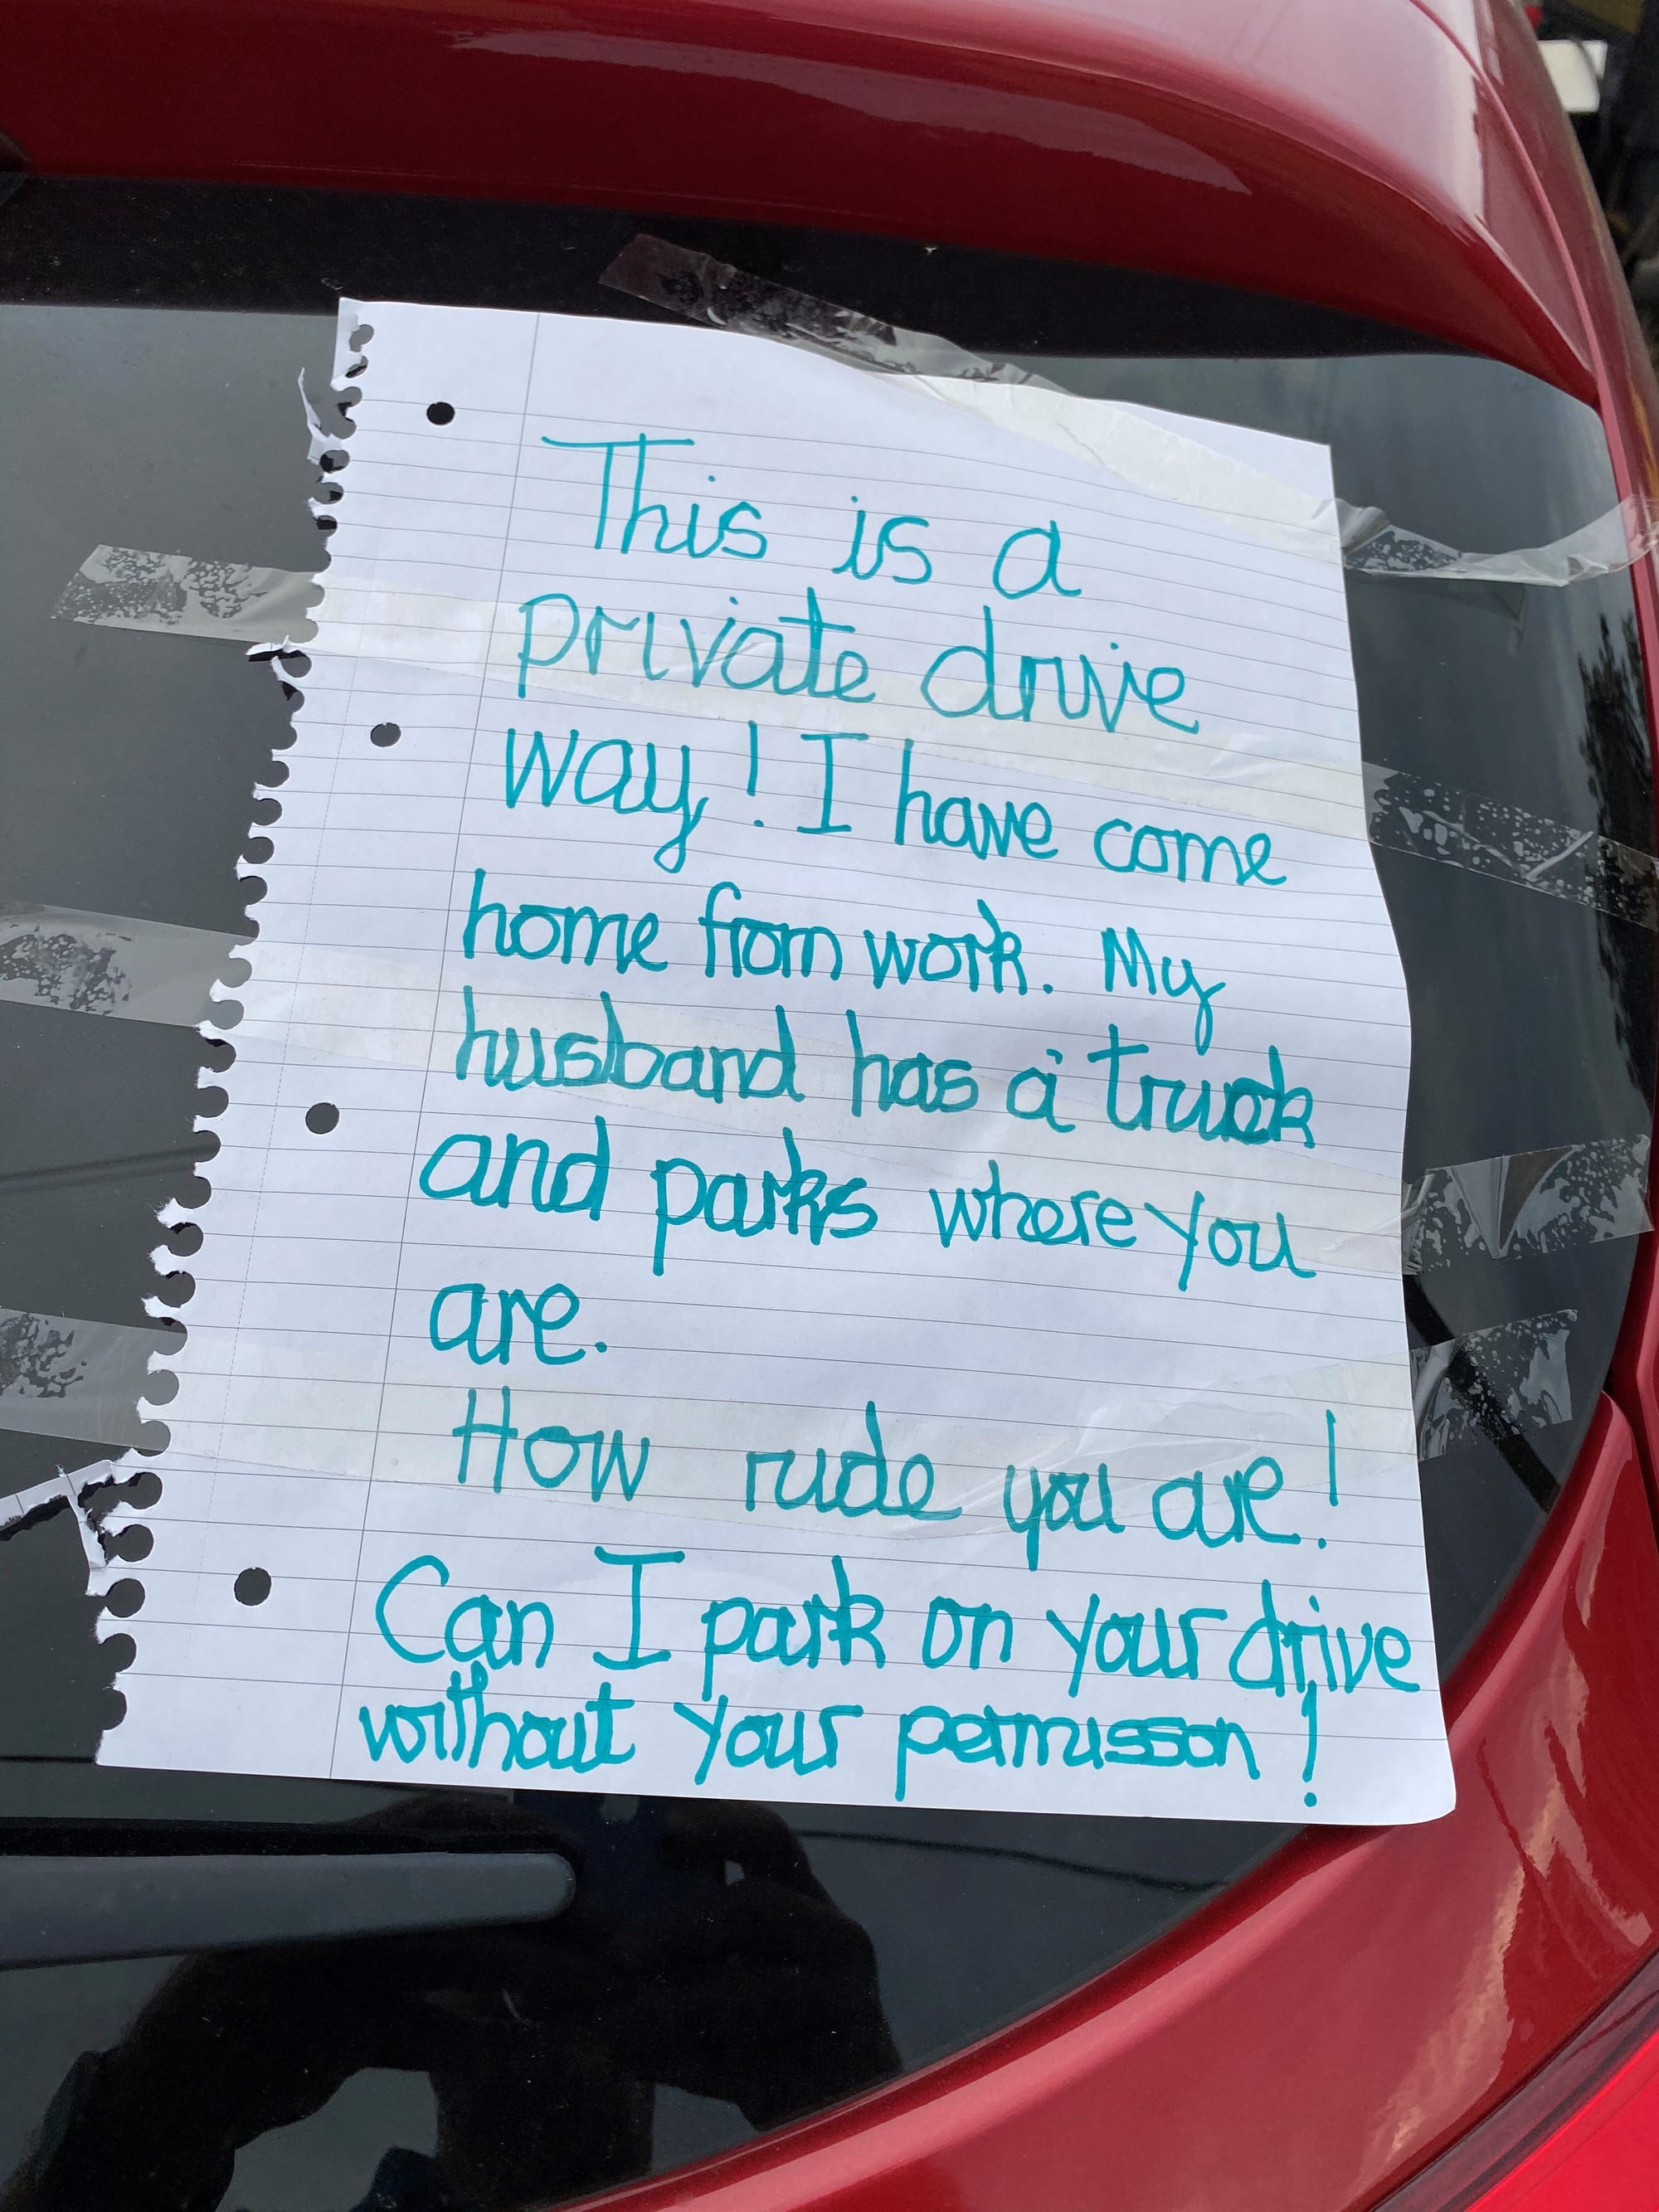 This is a
private drive
way! I have come
home from work. My
husband has a truck
and parks where you
are.
How rude you are!
Can I park on your drive
without your permisson!